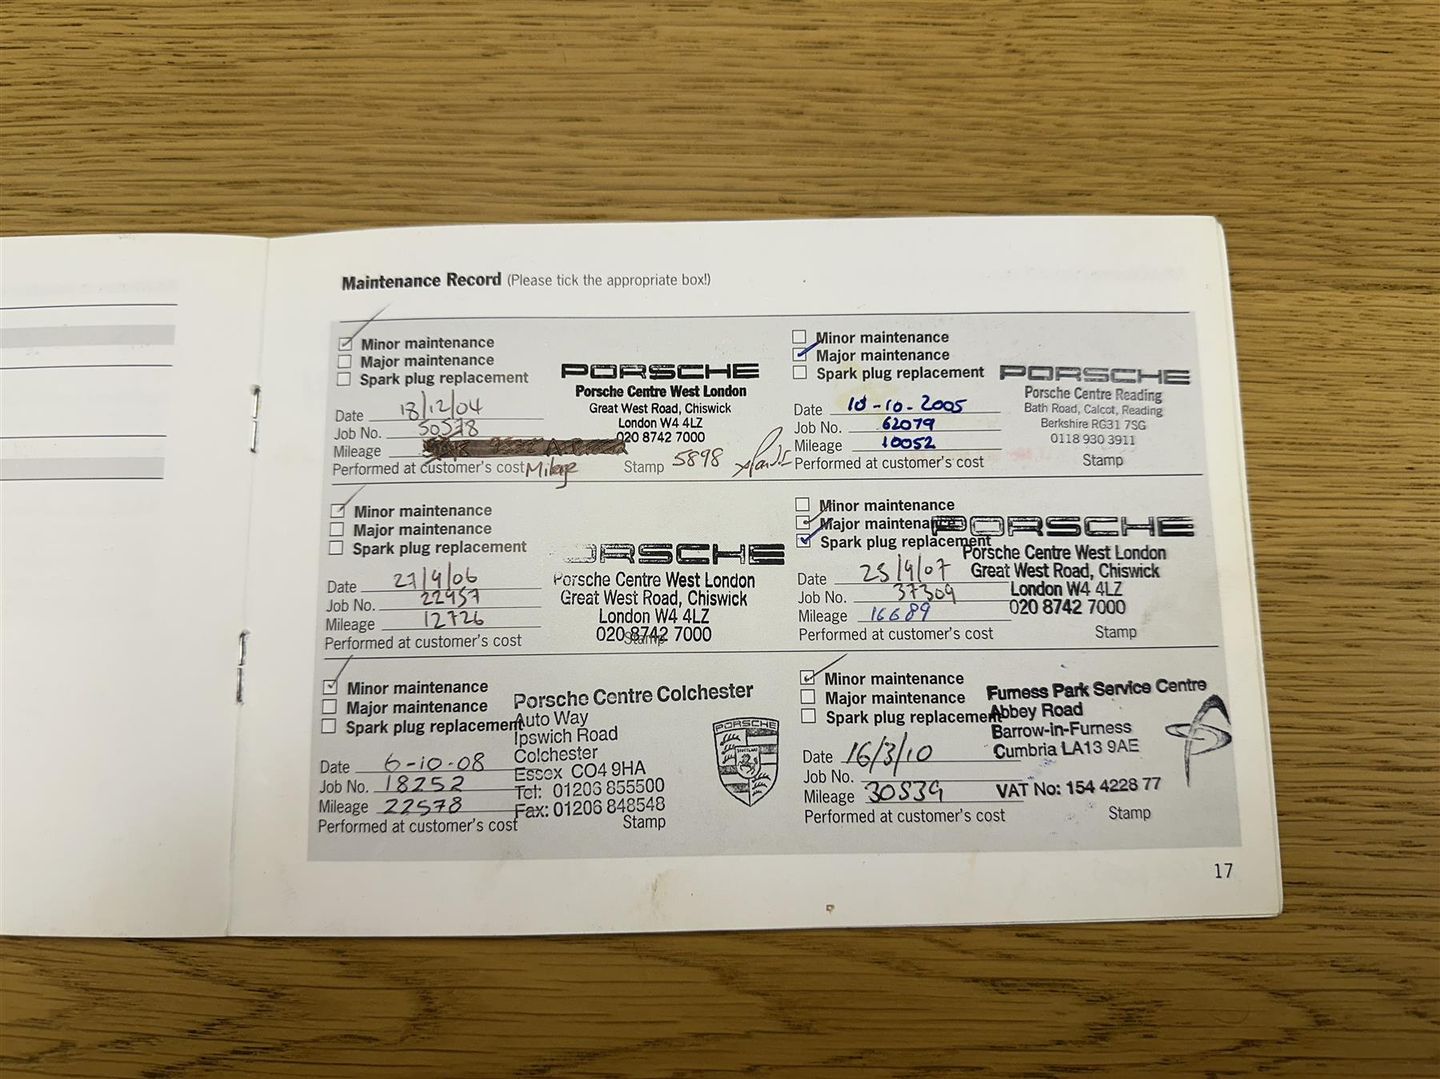 Maintenance Record (Please tick the appropriate box!)
Minor maintenance
Major maintenance
Spark plug replacement
PORSCHE
Porsche Centre West London
Great West Road, Chiswick
London W4 4LZ
020 8742 7000
Date 18/12/04
Job No. 30578
Mileage
Performed at customer's cost Mileage Stamp 5898
Minor maintenance
Major maintenance
Spark plug replacement
PORSCHE
Porsche Centre Reading
Bath Road, Calcot, Reading
Berkshire RG31 7SG
0118 930 3911
Date 18-10-2005
Job No. 62079
Mileage 10052
Performed at customer's cost Stamp
Minor maintenance
Major maintenance
Spark plug replacement
PORSCHE
Porsche Centre West London
Great West Road, Chiswick
London W4 4LZ
020 8742 7000
Date 27/9/06
Job No. 22457
Mileage 12726
Performed at customer's cost Stamp
Minor maintenance
Major maintenance
Spark plug replacement
PORSCHE
Porsche Centre West London
Great West Road, Chiswick
London W4 4LZ
020 8742 7000
Date 25/9/07
Job No. 37309
Mileage 16689
Performed at customer's cost Stamp
Minor maintenance
Major maintenance
Spark plug replacement
Porsche Centre Colchester
Auto Way
Ipswich Road
Colchester
Essex CO4 9HA
Tel: 01206 855500
Fax: 01206 848548
PORSCHE
Date 6-10-08
Job No. 18252
Mileage 22578
Performed at customer's cost Stamp
Minor maintenance
Major maintenance
Spark plug replacement
Furness Park Service Centre
Abbey Road
Barrow-in-Furness
Cumbria LA13 9AE
VAT No: 154 4228 77
Date 16/3/10
Job No.
Mileage 30539
Performed at customer's cost Stamp
17